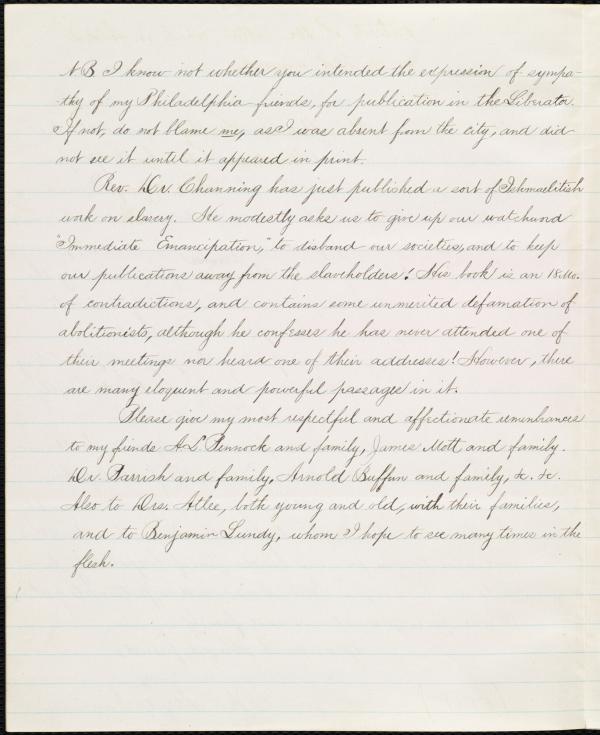 NB I know not whether you intended the expression of sympa-
-thy of my Philadelphia friends, for publication in the Liberator.
If not, do not blame me, as I was absent from the city, and did
not see it until it appeared in print.
Rev. Dr. Channing has just published a sort of Ishmaelitish
work on slavery. He modestly asks us to give up our watchword
"Immediate Emancipation," to disband our societies, and to keep
our publications away from the slaveholders! His book is an 18Mo.
of contradictions, and contains some unmerited defamation of
abolitionists, although he confesses he has never attended one of
their meetings nor heard one of their addresses! However, there
are many eloquent and powerful passages in it.
Please give my most respectful and affectionate remembrances
to my friends A. L. Pennock and family, James Mott and family.
Dr. Parrish and family, Arnold Buffum and family, &c. &c.
Also to Drs. Atlee, both young and old, with their families,
and to Benjamin Lundy, whom I hope to see many times in the
flesh.